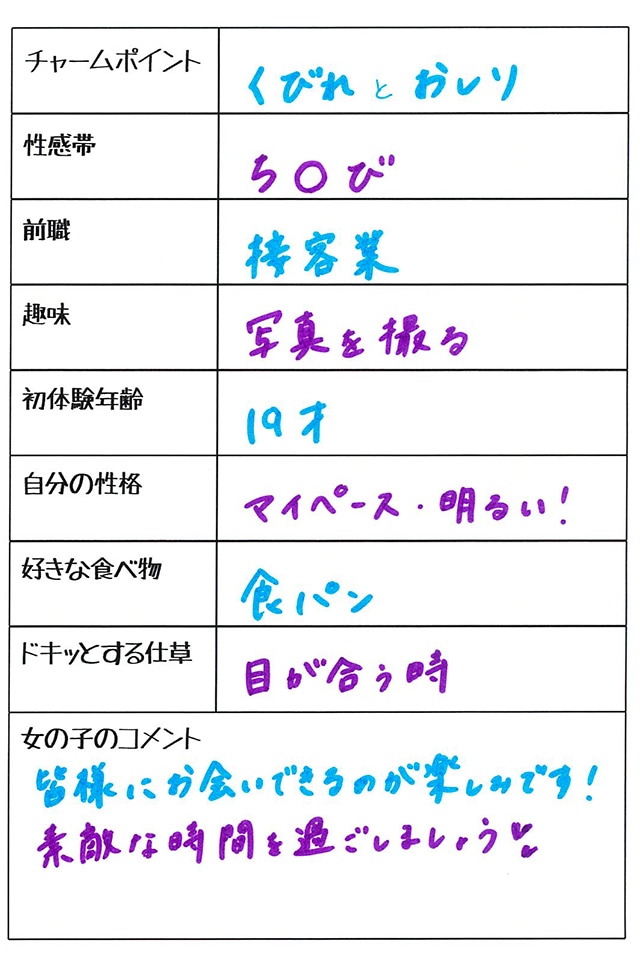 チャームポイント
くびれとおしり
性感帯
ち〇び
前職
接客業
趣味
写真を撮る
初体験年齢
19才
自分の性格
マイペース・明るい！
好きな食べ物
食パン
ドキッとする仕草
目が合う時
女の子のコメント
皆様にお会いできるのが楽しみです！
素敵な時間を過ごしましょう♡